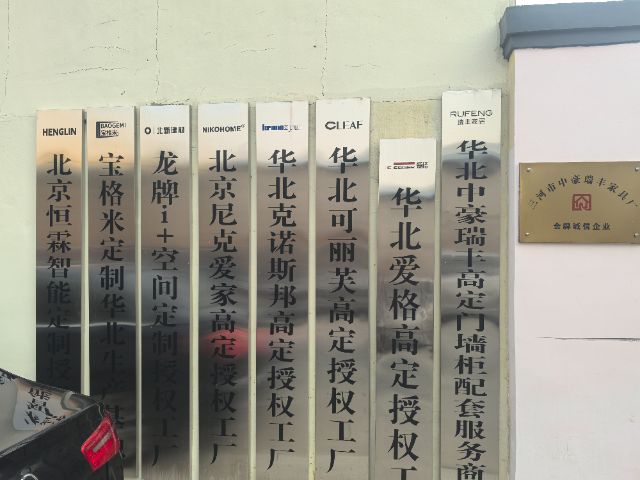 HENGLIN
北京恒霖智能定制授
BAOGEMI
宝格米
宝格米定制华北生产基
北新建材
龙牌i+空间定制授权工厂
NIKOHOME
北京尼克爱家高定授权工厂
华北克诺斯邦高定授权工厂
CLEAF
华北可丽芙高定授权工厂
华北爱格高定授权工
RUFENG
瑞丰家居
华北中豪瑞丰高定门墙柜配套服务商
三河市中豪瑞丰家具厂
金牌诚信企业